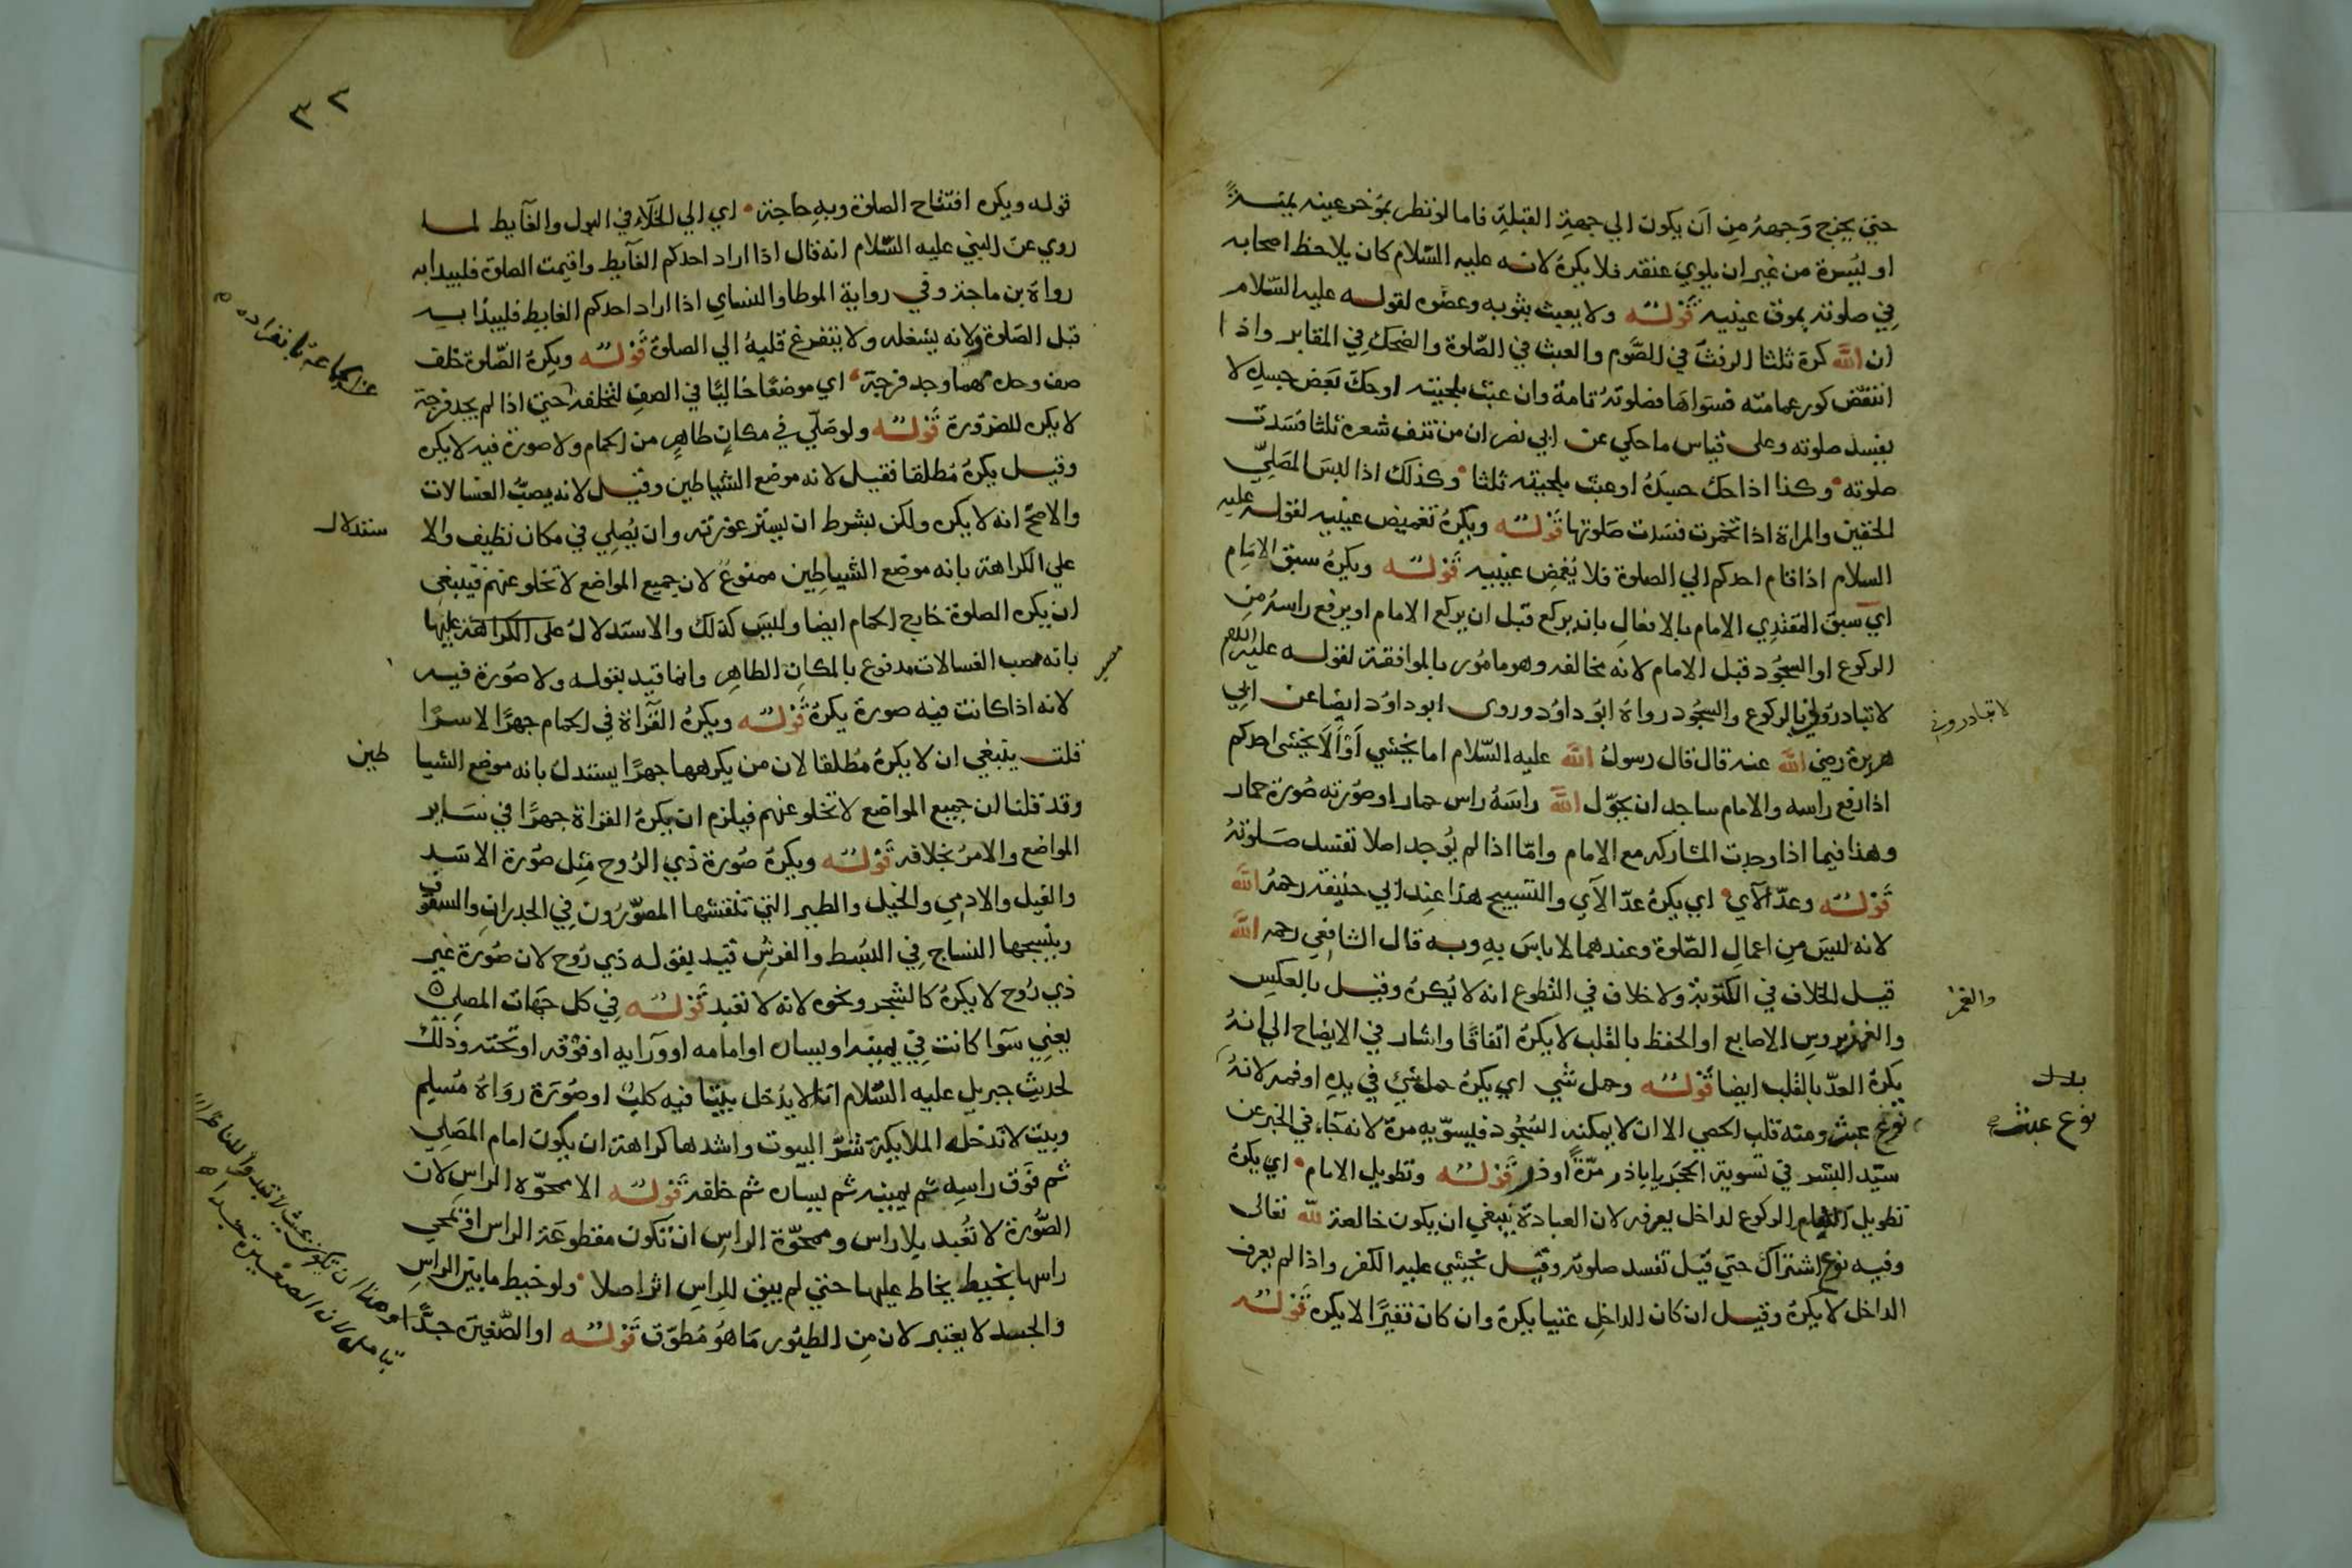 حتي يخرج وجهه من ان يكون الي جهة القبلة فاما لو نظر بموخر عينه يمنة
او يسرة من غير ان يلوي عنقه فلا يكره لانه عليه السلام كان يلاحظ اصحابه
في صلوته بموق عينيه قوله ولا يعبث بثوبه وعضوه لقوله عليه السلام
ان الله كره ثلثا الرفث في الصوم والعبث في الصلوة والضحك في المقابر واذا
انتقض كور عمامته فسواها فصلوته تامة وان عبث بلحيته او حك بعض جسده لا
يفسد صلوته وعلى قياس ما حكي عن ابي نصر ان من نتف شعره ثلثا فسدت
صلوته وكذا اذا حك جسده او عبث بلحيته ثلثا وكذلك اذا لبس المصلي
الخفين والمراة اذا تخمرت فسدت صلوتها قوله ويكره تغميض عينيه لقوله عليه
السلام اذا قام احدكم الي الصلوة فلا يغمض عينيه قوله ويكره سبق الامام
اي سبق المقتدي الامام بالافعال بان يركع قبل ان يركع الامام او يرفع راسه من
الركوع او السجود قبل الامام لانه مخالفه وهو مامور بالموافقة لقوله عليه السلام
لا تبادروني بالركوع والسجود رواه ابو داود وروى ابو داود ايضا عن ابي
هريرة رضي الله عنه قال قال رسول الله عليه السلام اما يخشي او الا يخشى احدكم
اذا رفع راسه والامام ساجد ان يحول الله راسه راس حمار او صورته صورة حمار
وهذا فيما اذا وجدت المشاركه مع الامام واما اذا لم يوجد اصلا تفسد صلوته
قوله وعد الآي اي يكره عد الآي والتسبيح هذا عند ابي حنيفة رحمه الله
لانه ليس من اعمال الصلوة وعندهما لا باس به وبه قال الشافعي رحمه الله
قيل الخلاف في المكتوبة ولا خلاف في التطوع انه لا يكره وقيل بالعكس
والغمز بروس الاصابع او الحفظ بالقلب لا يكره اتفاقا واشار في الايضاح الي انه
يكره العد بالقلب ايضا قوله وحمل شي اي يكره حمل شي في يده او فمه لانه
نوع عبث ومنه قلب الحصي الا ان لا يمكنه السجود فيسويه مرة لانه جاء في الخبر عن
سيد البشر في تسوية الحجر يا باذر مرة او ذر قوله وتطويل الامام اي يكره
تطويل الامام الركوع لداخل يعرفه لان العبادة ينبغي ان يكون خالصة لله تعالى
وفيه نوع اشتراك حتي قيل تفسد صلوته وقيل يخشي عليه الكفر واذا لم يعرف
الداخل لا يكره وقيل ان كان الداخل غنيا يكره وان كان فقيرا لا يكره قوله
لا تبادروني
والغمز
بدل
نوع عبث
٣٢
قوله ويكره افتتاح الصلوة وبه حاجة اي الي الخلاء في البول والغآيط لما
روي عن النبي عليه السلام انه قال اذا اراد احدكم الغآيط واقيمت الصلوة فليبدا به
رواه بن ماجة وفي رواية الموطا والنساي اذا اراد احدكم الغايط فليبدا به
قبل الصلوة ولانه يشغله ولا يتفرغ قلبه الي الصلوة قوله ويكره الصلوة خلف
صف وحده مهما وجد فرجة اي موضعا خاليا في الصف لتخلفه حتي اذا لم يجد فرجة
لا يكره للضرورة قوله ولو صلي في مكان طاهر من الحمام ولا صورة فيه لا يكره
وقيل يكره مطلقا فقيل لانه موضع الشياطين وقيل لانه يصب الغسالات
والاصح انه لا يكره ولكن بشرط ان يستر عورته وان يصلي في مكان نظيف والا
ستدلال
علي الكراهة بانه موضع الشياطين ممنوع لان جميع المواضع لا تخلو عنهم فينبغي
ان يكره الصلوة خارج الحمام ايضا وليس كذلك والاستدلال على الكراهة عليها
بانه مصب الغسالات مدفوع بالمكان الطاهر وانما قيد بقوله ولا صورة فيه
لانه اذا كانت فيه صورة يكره قوله ويكره القراة في الحمام جهرا لا سرا
قلت ينبغي ان لا يكره مطلقا لان من يكرهها جهرا يستدل بانه موضع الشيا
طين
وقد قلنا ان جميع المواضع لا تخلو عنهم فيلزم ان يكره القراة جهرا في ساير
المواضع والامر بخلافه قوله ويكره صورة ذي الروح مثل صورة الاسد
والفيل والادمي والخيل والطير التي تنقشها المصورون في الجدران والسقوف
وينسجها النساج في البسط والفرش قيد بقوله ذي روح لان صورة غير
ذي روح لا يكره كالشجر ونحوه لانه لا تعبد قوله في كل جهات المصلي
يعني سوآ كانت في يمينه او يساره او امامه او ورآيه او فوقه او تحته وذلك
لحديث جبريل عليه السلام انا لا يدخل بيتا فيه كلب او صورة رواه مسلم
وبيت لا تدخله الملايكة شر البيوت واشدها كراهة ان يكون امام المصلي
ثم فوق راسه ثم يمينه ثم يساره ثم خلفه قوله الا ممحوه الراس لان
الصورة لا تعبد بلا راس وممحوة الراس ان تكون مقطوعة الراس او تمحي
راسها بخيط يخاط عليها حتي لم يبق للراس اثر اصلا ولو خيط ما بين الراس
والجسد لا يعتبر لان من الطيور ما هو مطوق قوله او الصغيرة جدا